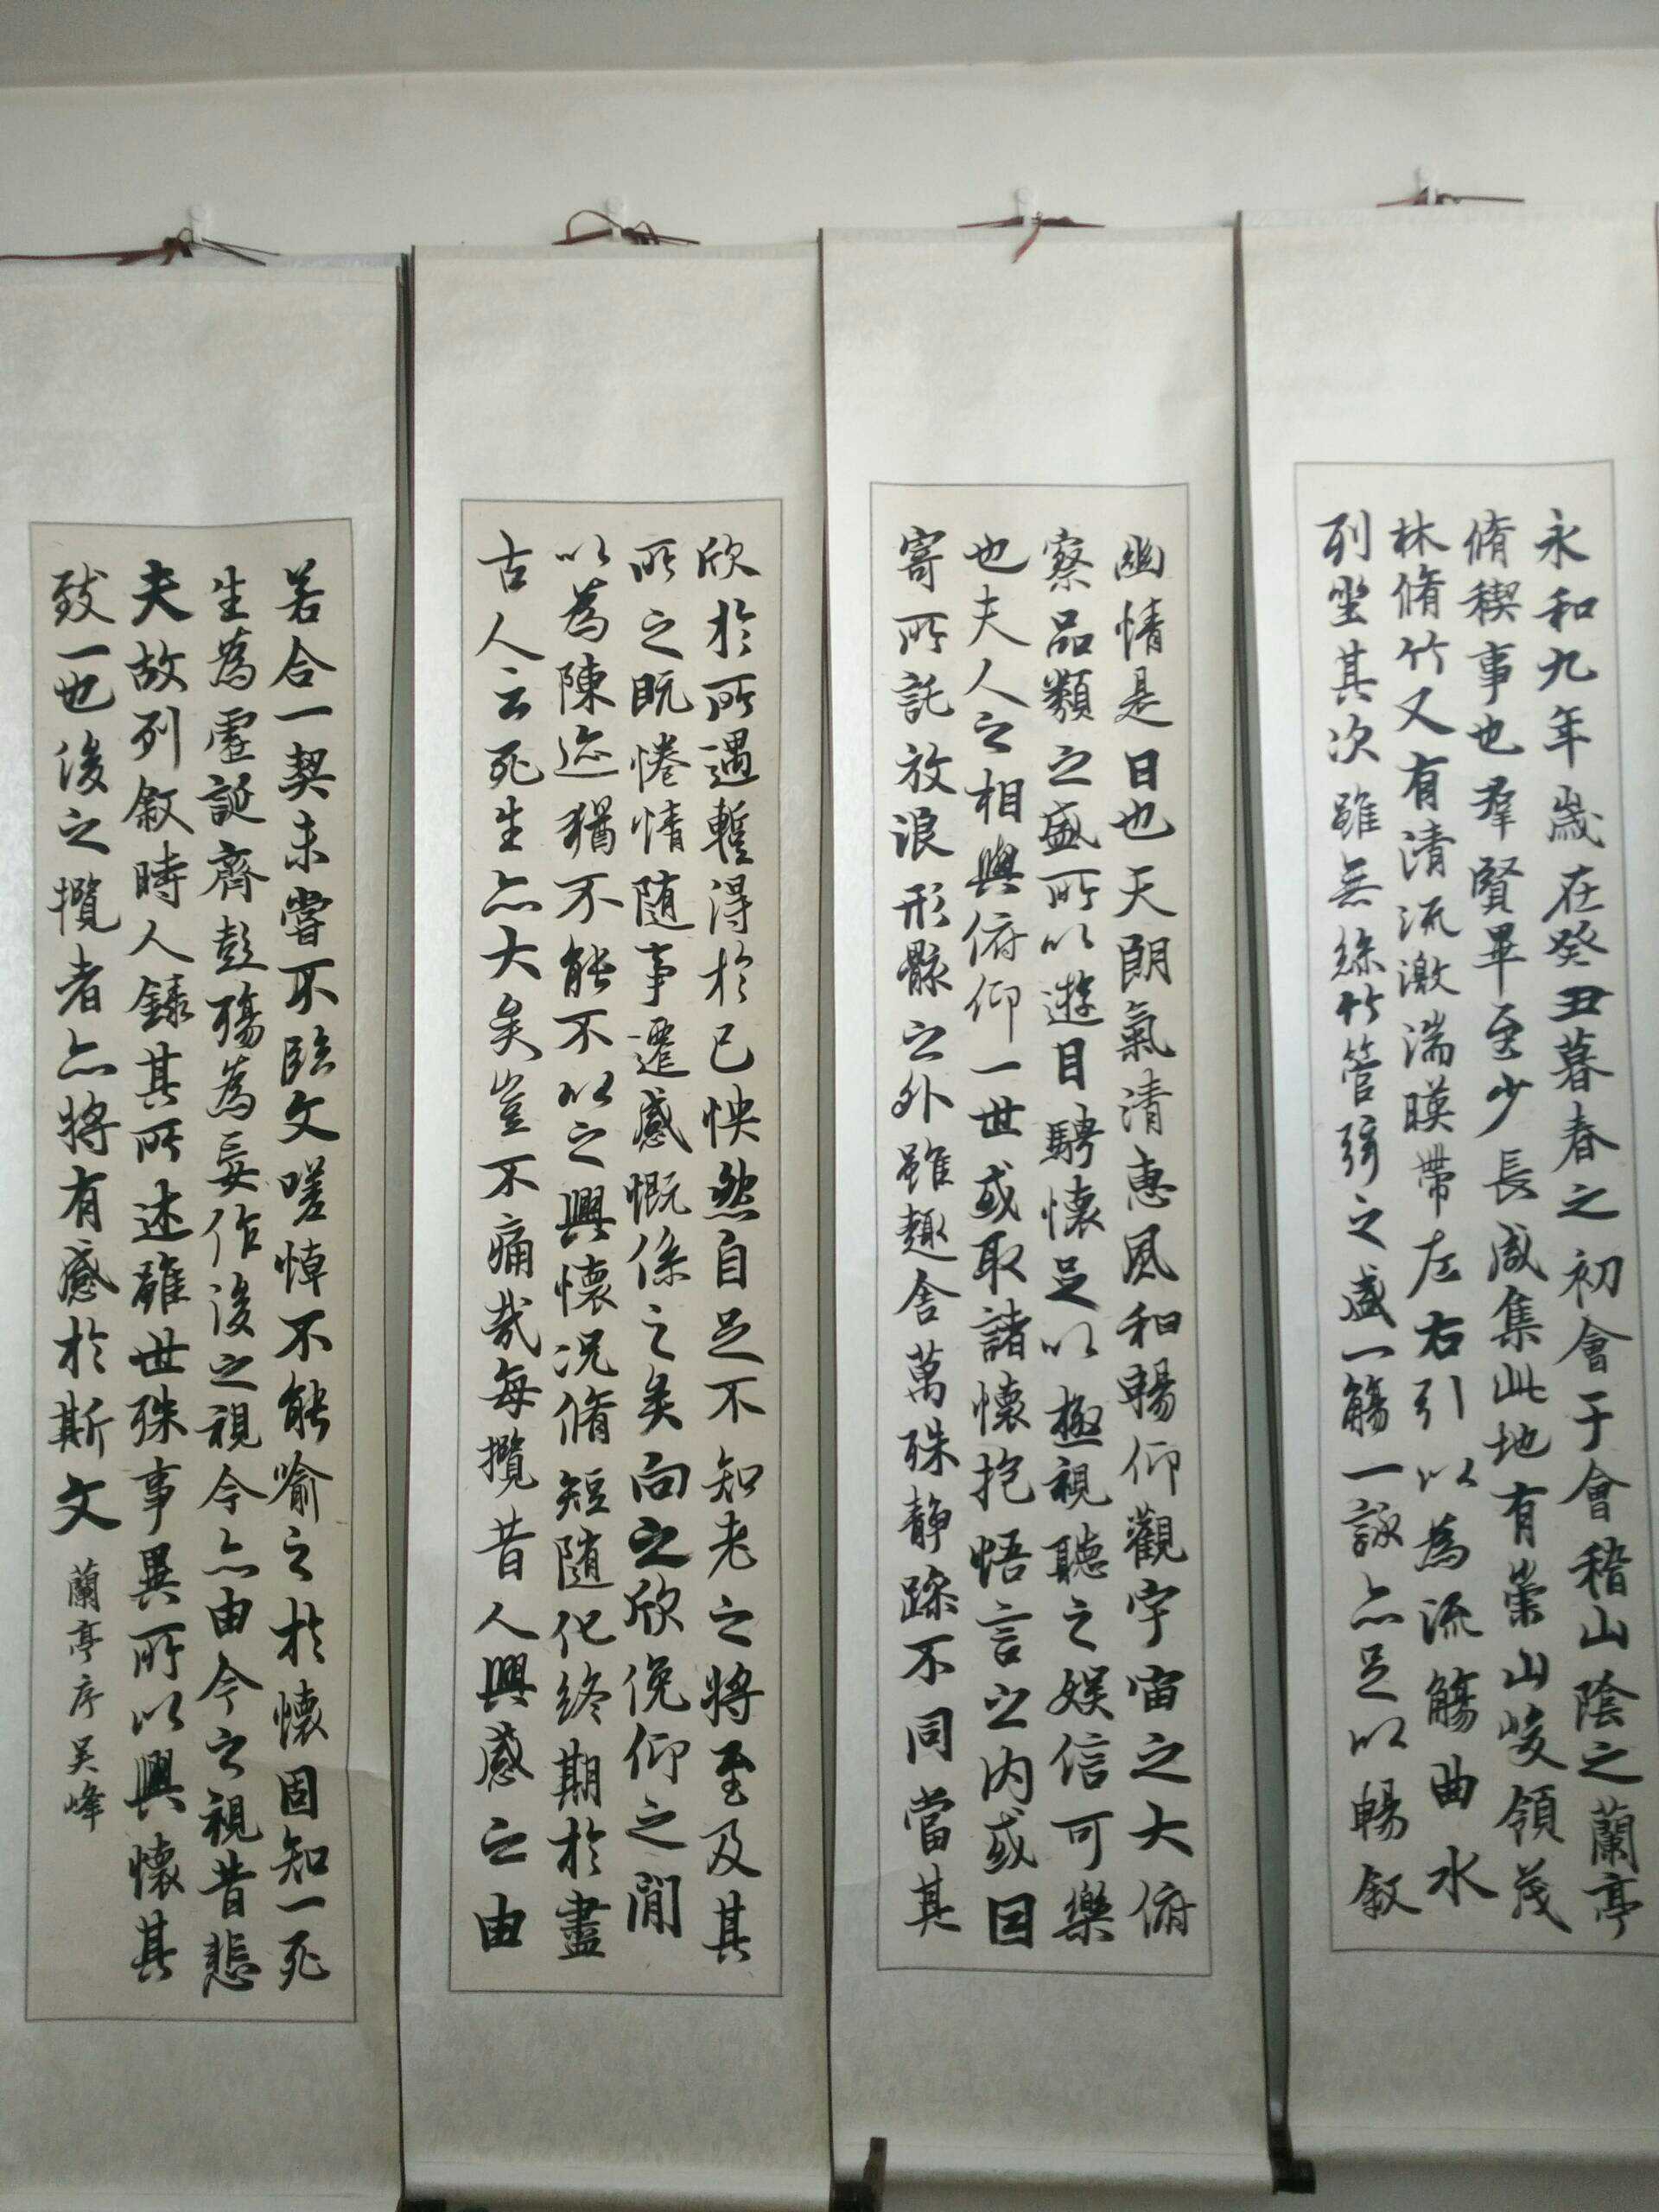 永和九年歲在癸丑暮春之初會于會稽山陰之蘭亭
脩稧事也羣賢畢至少長咸集此地有崇山峻領茂
林脩竹又有清流激湍暎帶左右引以為流觴曲水
列坐其次雖無絲竹管弦之盛一觴一詠亦足以暢敘
幽情是日也天朗氣清惠風和暢仰觀宇宙之大俯
察品類之盛所以遊目騁懷足以極視聽之娛信可樂
也夫人之相與俯仰一世或取諸懷抱悟言之内或因
寄所託放浪形骸之外雖趣舍萬殊静躁不同當其
欣於所遇暫得於己怏然自足不知老之將至及其
所之既惓情随事遷感慨係之矣向之欣俛仰之閒
以為陳迹猶不能不以之興懷况脩短随化終期於盡
古人云死生亦大矣豈不痛哉每攬昔人興感之由
若合一契未嘗不臨文嗟悼不能喻之於懷固知一死
生為虛誕齊彭殤為妄作後之視今亦由今之視昔悲
夫故列敘時人錄其所述雖世殊事異所以興懷其
致一也後之攬者亦將有感於斯文 蘭亭序吴峰